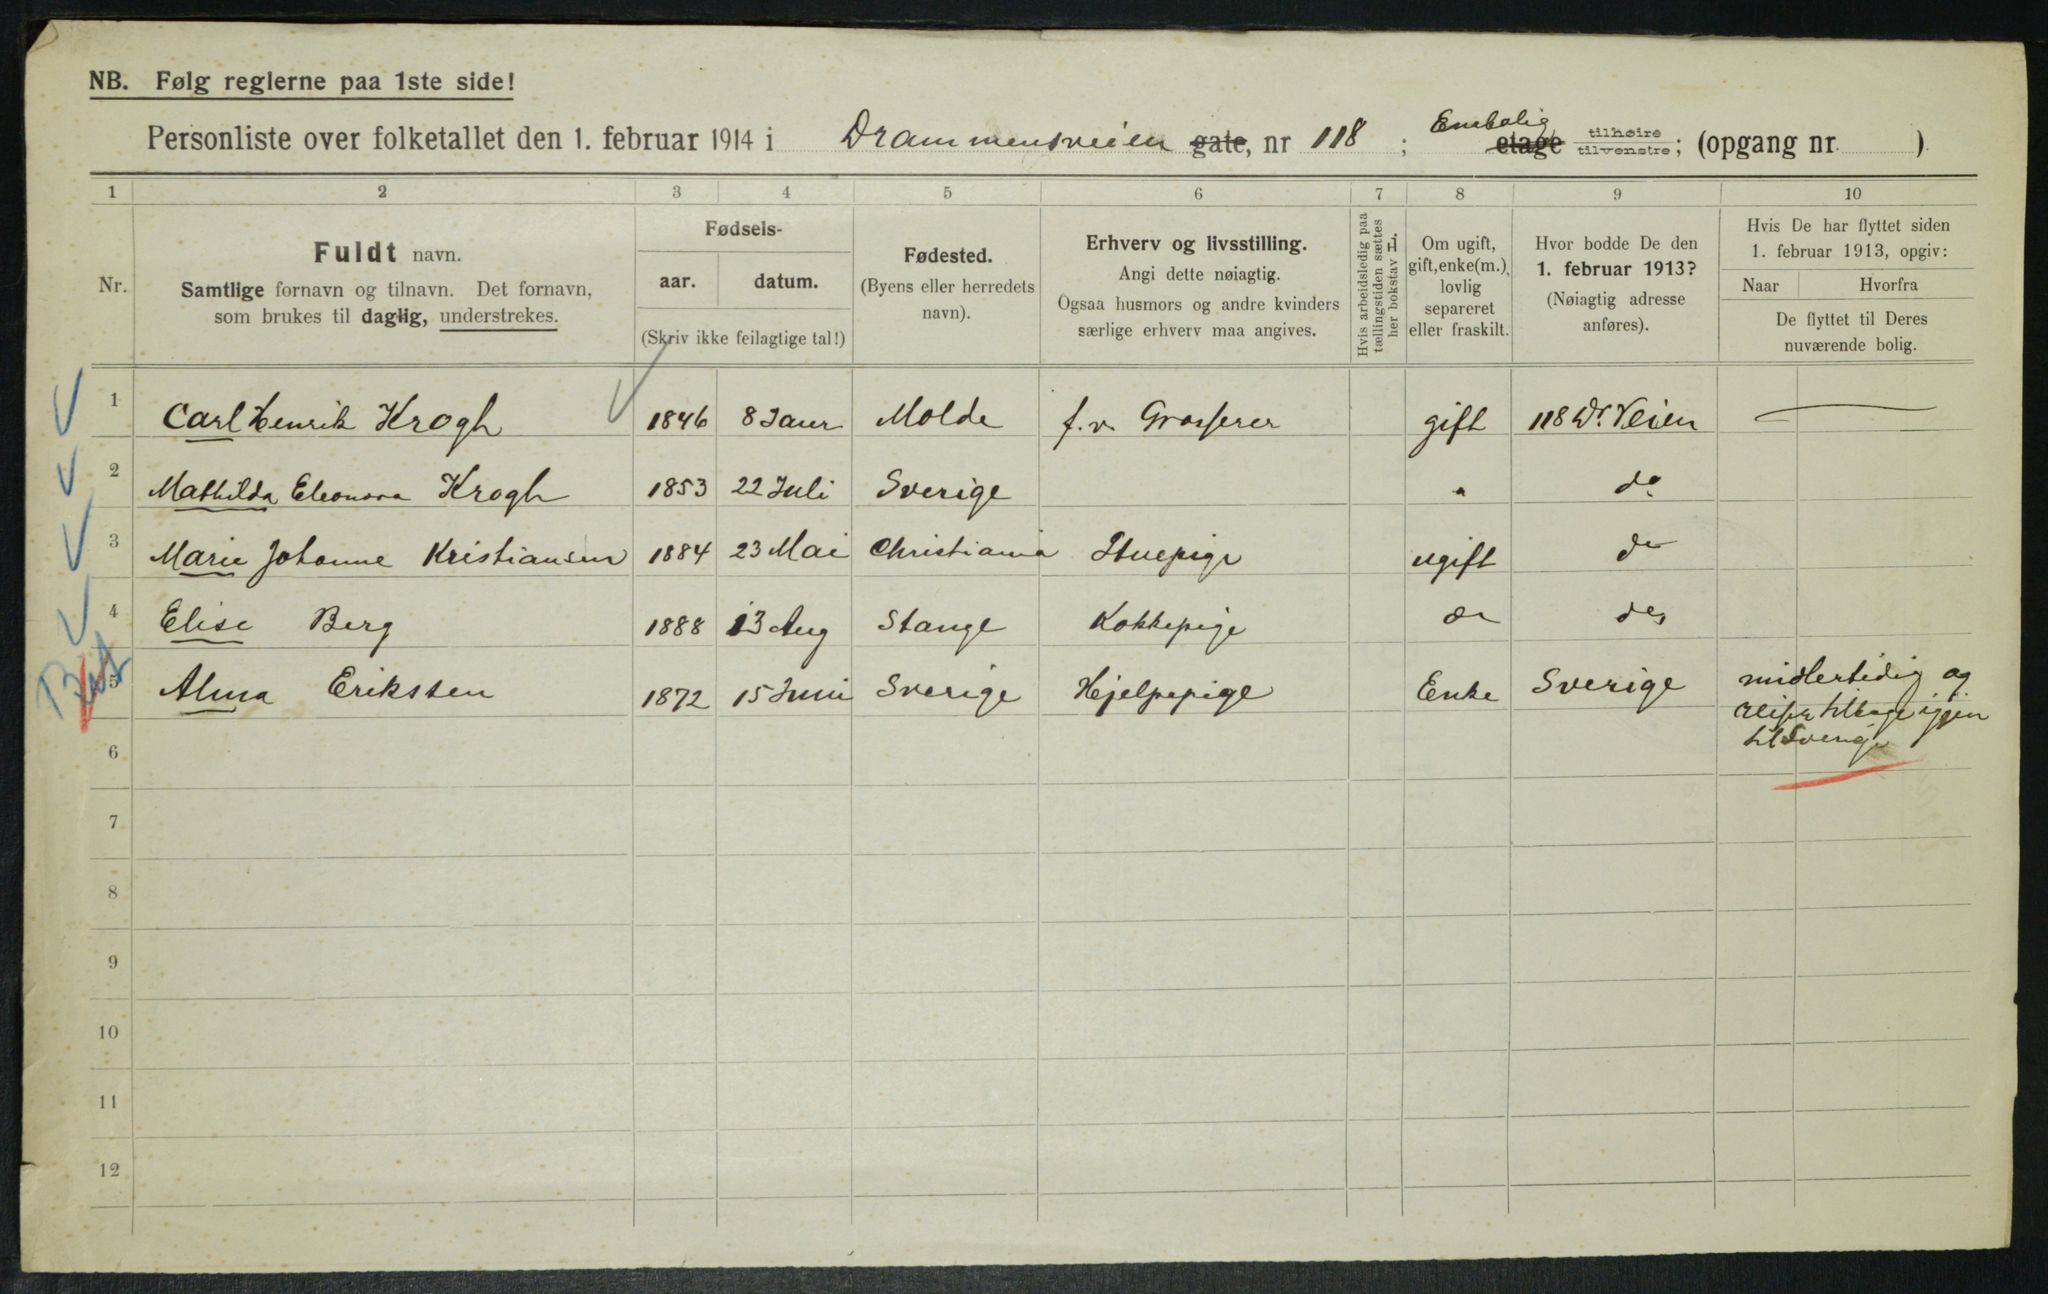 NB. Følg reglerne paa 1ste side!
Personliste over folketallet den 1. februar 1914 i Drammensveien gate, nr 118 ; Enebolig etage tilhøire tilvenstre; (opgang nr. )
1 2 3 4 5 6 7 8 9 10
Nr.
Fuldt navn.
Samtlige fornavn og tilnavn. Det fornavn,
som brukes til daglig, understrekes.
Fødsels-
aar. datum.
(Skriv ikke feilagtige tal!)
Fødested.
(Byens eller herredets
navn).
Erhverv og livsstilling.
Angi dette nøiagtig.
Ogsaa husmors og andre kvinders
særlige erhverv maa angives.
Hvis arbeidsledig paa
tællingstiden sættes
her bokstav L.
Om ugift,
gift, enke(m.),
lovlig
separeret
eller fraskilt.
Hvor bodde De den
1. februar 1913?
(Nøiagtig adresse
anføres).
Hvis De har flyttet siden
1. februar 1913, opgiv:
Naar Hvorfra
De flyttet til Deres
nuværende bolig.
1 Carl Henrik Krogh 1846 8 Janr Molde f.v. Grosserer gift 118 Dr. Veien
2 Mathilda Eleonora Krogh 1853 22 Juli Sverige " do
3 Marie Johanne Kristiansen 1884 23 Mai Christiania Stuepige ugift do
4 Elise Berg 1888 13 Aug Stange Kokkepige do do
5 Alma Eriksten 1872 15 Juni Sverige Hjelpepige Enke Sverige midlertidig og
reiser tilbage igjen
til Sverige
6
7
8
9
10
11
12